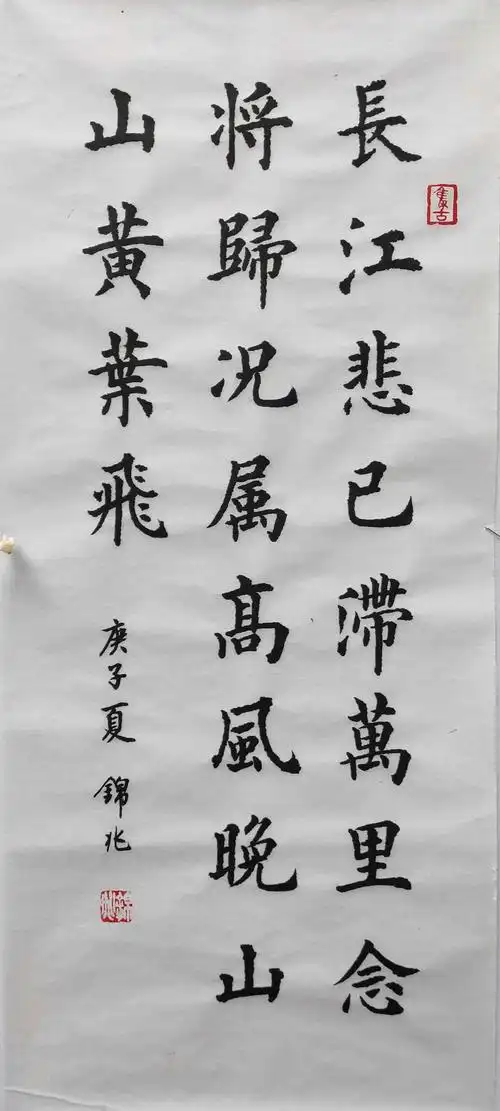 長江悲已滯萬里念
将歸况属高風晚山
山黃葉飛
庚子夏 錦兆